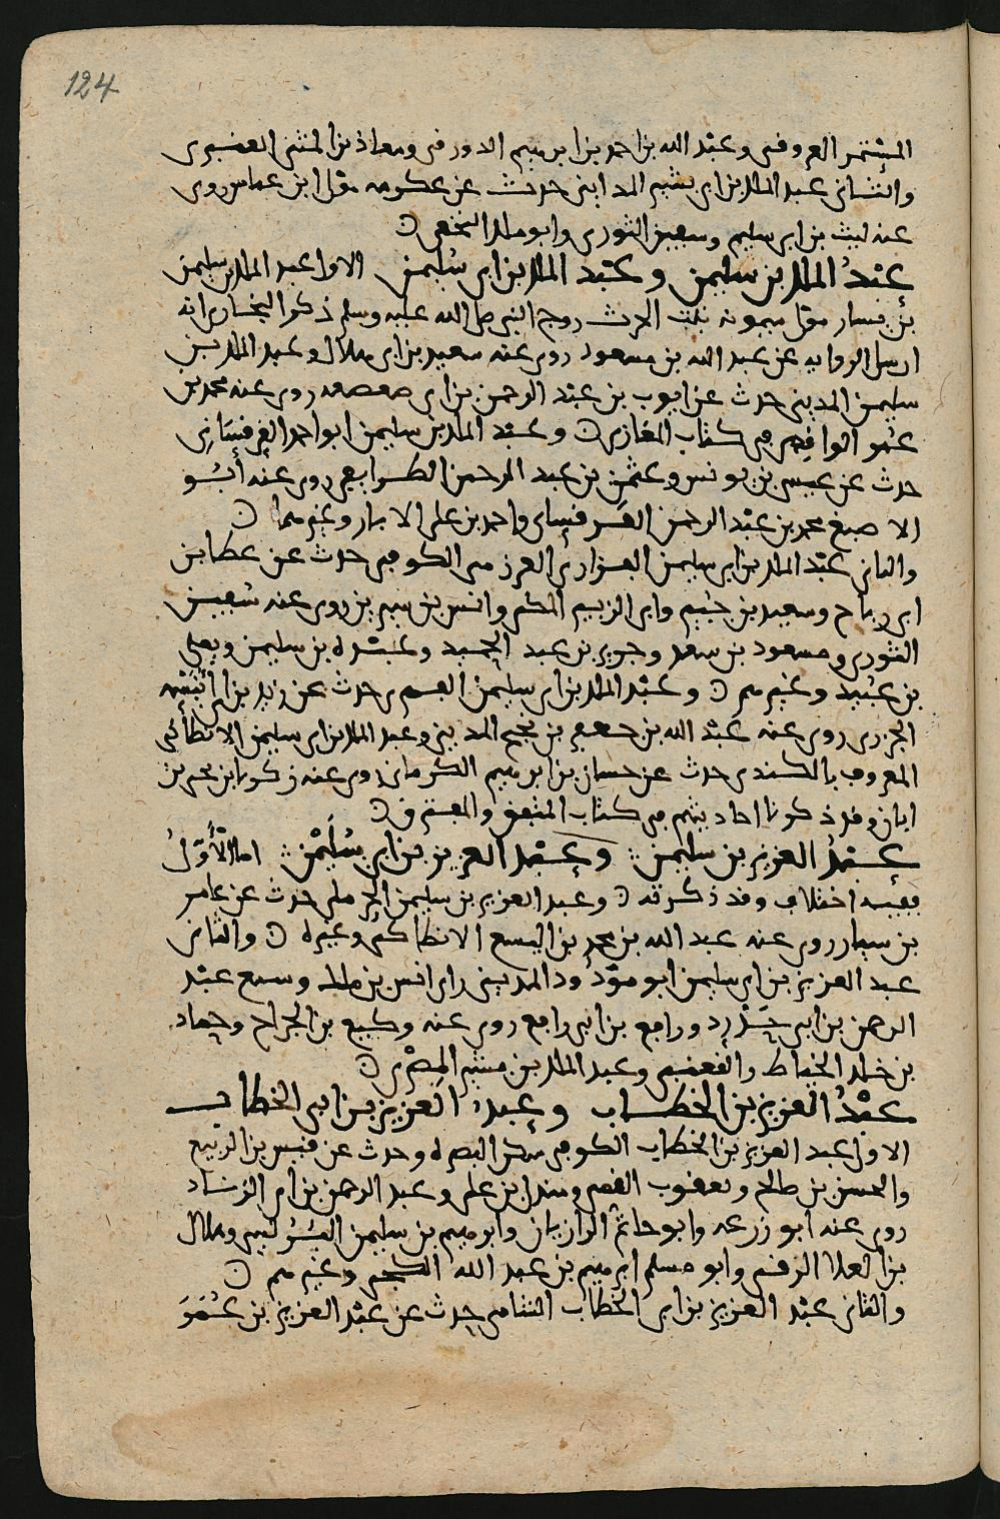 124
المستمر العروقى وعبد الله بن احمد بن ابرهيم الدورقى ومعاذ بن المثنى العنبرى
والثانى عبد الملك بن ابى بشير المداينى حدث عن عكرمه مولى ابن عباس روى
عنه ليث بن ابى سليم وسفين الثورى وابو ملك النخعى
عبد الملك بن سليمن وعبد الملك بن ابى سليمن الاول عبد الملك بن سليمن
بن يسار مولى ميمونة بنت الحرث زوج النبى صلى الله عليه وسلم ذكر البخارى انه
ارسل الروايه عن عبد الله بن مسعود روى عنه سعيد بن ابى هلال وعبد الملك بن
سليمن المدينى حدث عن ايوب بن عبد الرحمن بن ابى صعصعه روى عنه محمد بن
عمر الواقدى فى كتاب المغازى وعبد الملك بن سليمن ابو احمد القرقسانى
حدث عن عيسى بن يونس وعثمن بن عبد الرحمن الطرايفى روى عنه ابو
الاصبغ محمد بن عبد الرحمن القرقسانى واحمد بن على الابار وغيرهما
والثانى عبد الملك بن ابى سليمن الفزارى العرزمى الكوفى حدث عن عطا بن
ابى رباح وسعيد بن جبير وابى الزبير المكى وانس بن سيرين روى عنه سفين
الثورى ومسعود بن سعد وجرير بن عبد الحميد وعبدة بن سليمن ويعلى
بن عبيد وغيرهم وعبد الملك بن ابى سليمن حدث عن زيد بن ابى انيسه
الجزرى روى عنه عبد الله بن جعفر بن نجيح المدينى وعبد الملك بن ابى سليمن الانطاكى
المعروف بالكندى حدث عن حسان بن ابرهيم الكرمانى روى عنه زكريا بن يحيى بن
ابان وقد ذكرنا احاديثهم فى كتاب المتفق والمفترق
عبد العزيز بن سليمن وعبد العزيز بن ابى سليمن اما الاول
ففيه اختلاف وقد ذكرته وعبد العزيز بن سليمن الحرملى حدث عن عامر
بن سيار روى عنه عبد الله بن محمد بن اليسع الانطاكى وغيره والثانى
عبد العزيز بن ابى سليمن ابو مودود المدينى راى انس بن ملك وسمع عبد
الرحمن بن ابى حدرد ورافع بن ابى رافع روى عنه وكيع بن الجراح وحماد
بن خالد الخياط والقعنبى وعبد الملك بن مسير المصرى
عبد العزيز بن الخطاب وعبد العزيز بن ابى الخطاب
الاول عبد العزيز بن الخطاب الكوفى سكن البصره وحدث عن قيس بن الربيع
والحسن بن صالح ويعقوب القمى ومندل بن على وعبد الرحمن بن ابى الزناد
روى عنه ابو زرعه وابو حاتم الرازيان وابرهيم بن سليمن البرلسى وهلال
بن العلا الرقى وابو مسلم ابرهيم بن عبد الله الكجى وغيرهم
والثانى عبد العزيز بن ابى الخطاب الشامى حدث عن عبد العزيز بن عمر